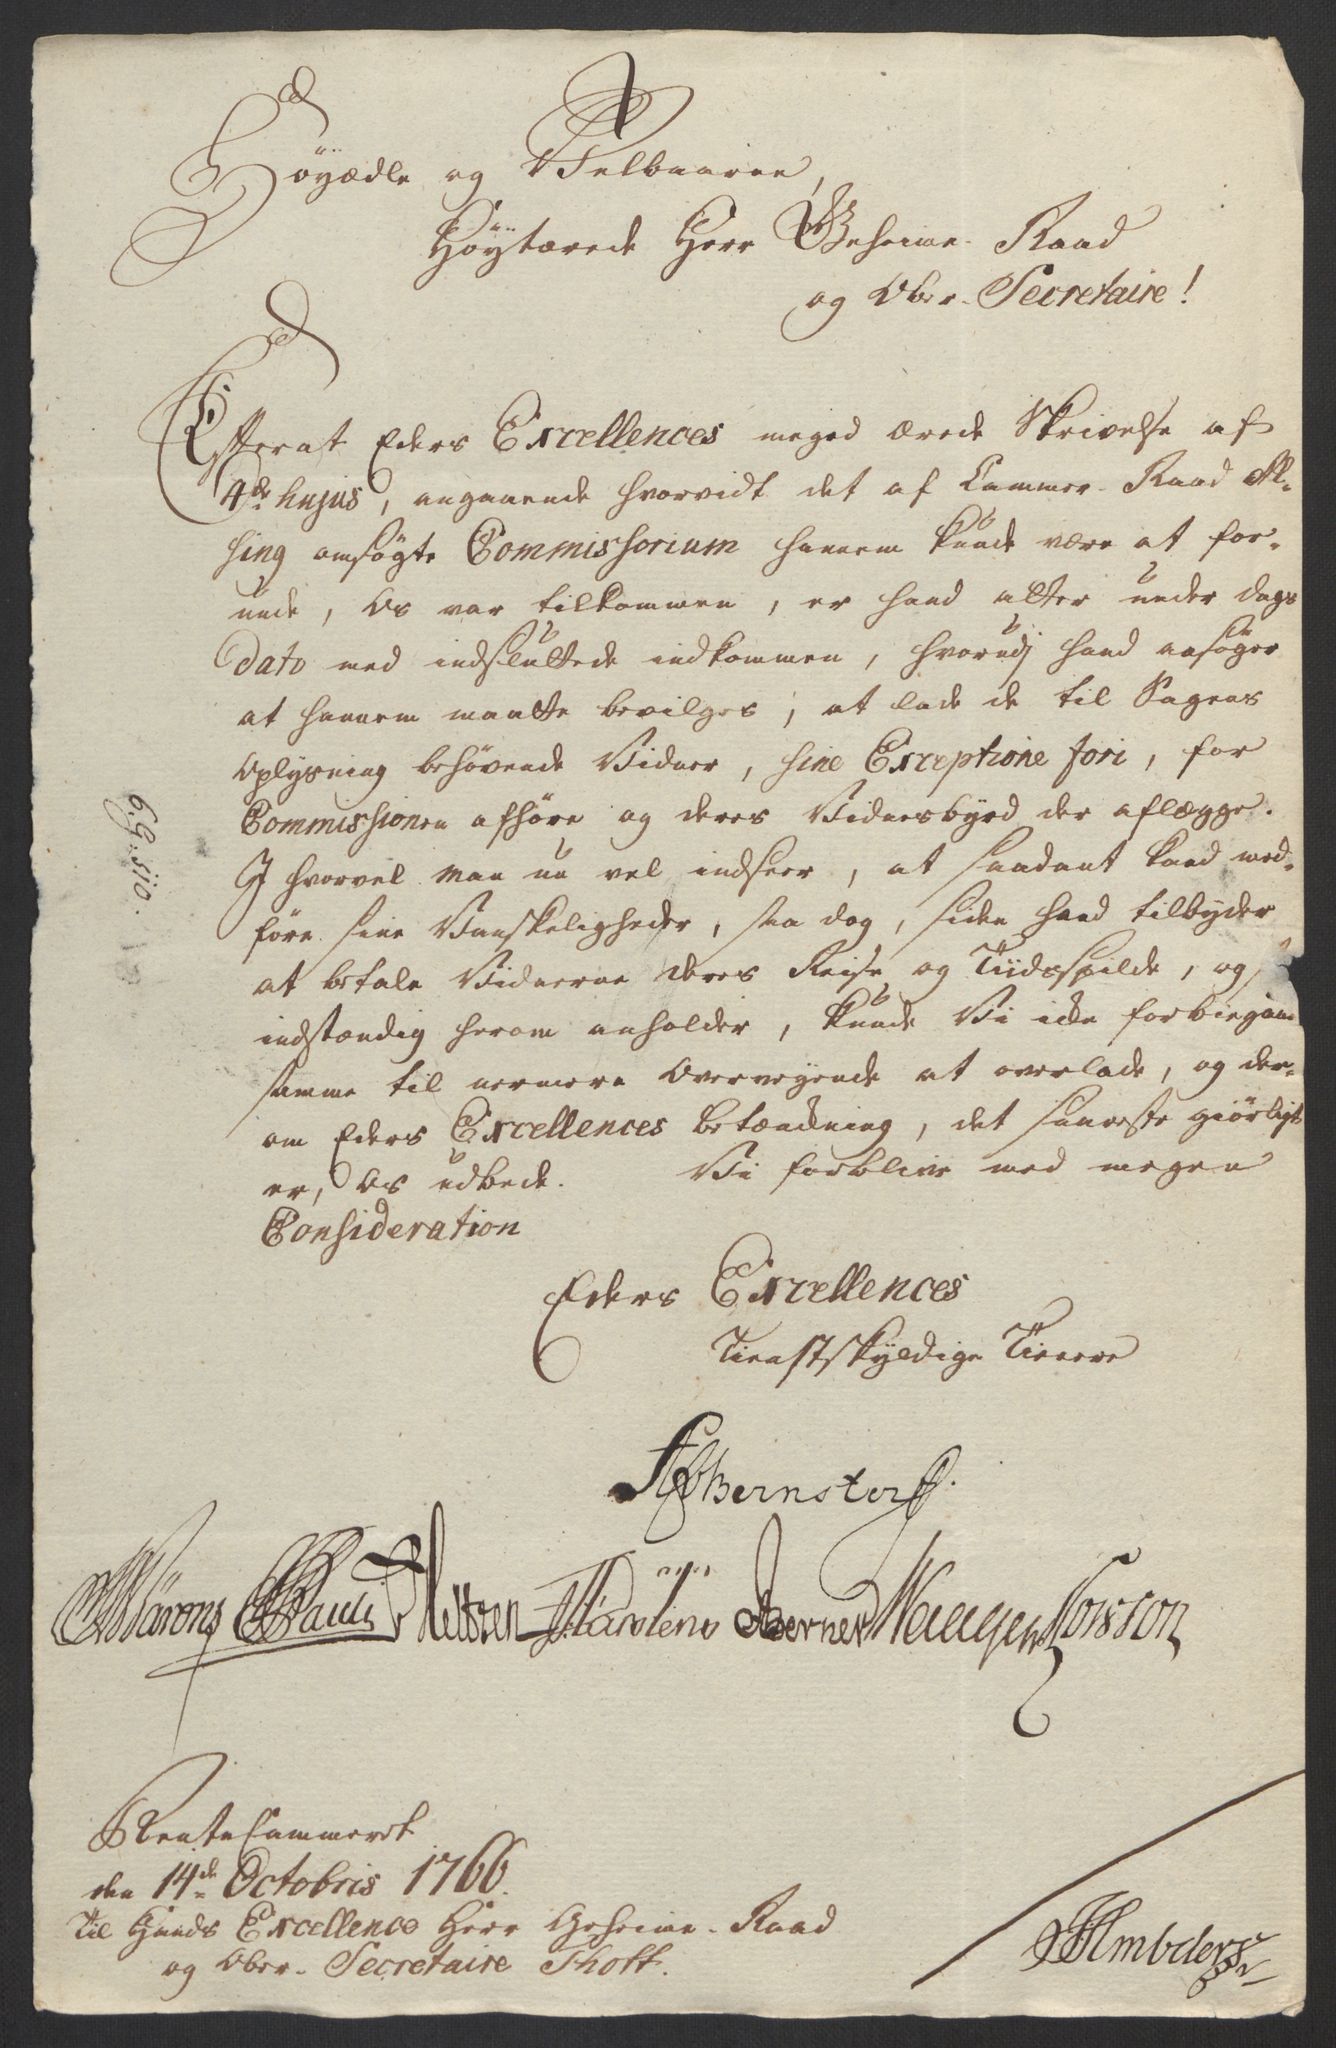 Höyædle og Velbaarne,
Höytærede Herr Geheime-Raad
og Ober-Secretaire!
Efterat Eders Excellences meged ærede Skrivelse af
4de hujus, angaaende hvorvidt det af Cammer-Raad
sing ansøgte Commissorium hannem kunde være at for-
unde, Os var tilkommen, er hand atter under dags
Dato med indsluttede indkommen, hvorudj hand ansøger
at hannem maatte bevilges, at lade de til Sagens
Oplysning behøvende Vidner, sine Exceptione fori, for
Commissionen afhøre og deres Vidnesbyrd der aflægge.
I hvorvel man nu vel indseer, at saadant kand med-
føre sine Vanskeligheder, saa dog, siden hand tilbyder
at betale Vidnerne deres Reise og Tiidsspilde, og
indstændig herom anholder, kunde Vi icke forbiegaae
samme til nermere Overvejende at overlade, og der-
om Eders Excellences betænckning, det snareste giørligt
er, Os udbede. Vi forblive med megen
Consideration
Eders Excellences
Tienstskyldige Tienere
Bernstorff.
Pauli
Berner
Rente Cammeret
den 14de Octobris 1766.
Til Hands Excellence Herr Geheime-Raad
og Ober-Secretaire Thott.
6. G. 510.